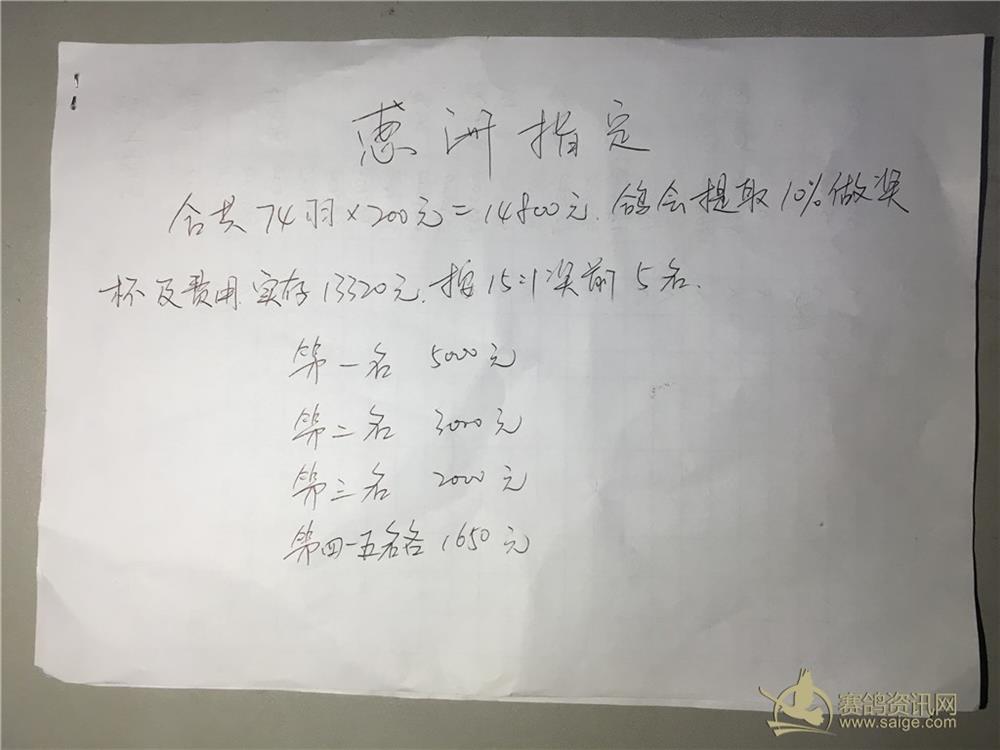 惠洲指定
合共74羽×200元=14800元.鸽会提取10%做奖
杯及费用.实存13320元.按15:1奖前5名.
第一名 5000元
第二名 3000元
第三名 2000元
第四-五名各1650元
赛鸽资讯网
www.saige.com